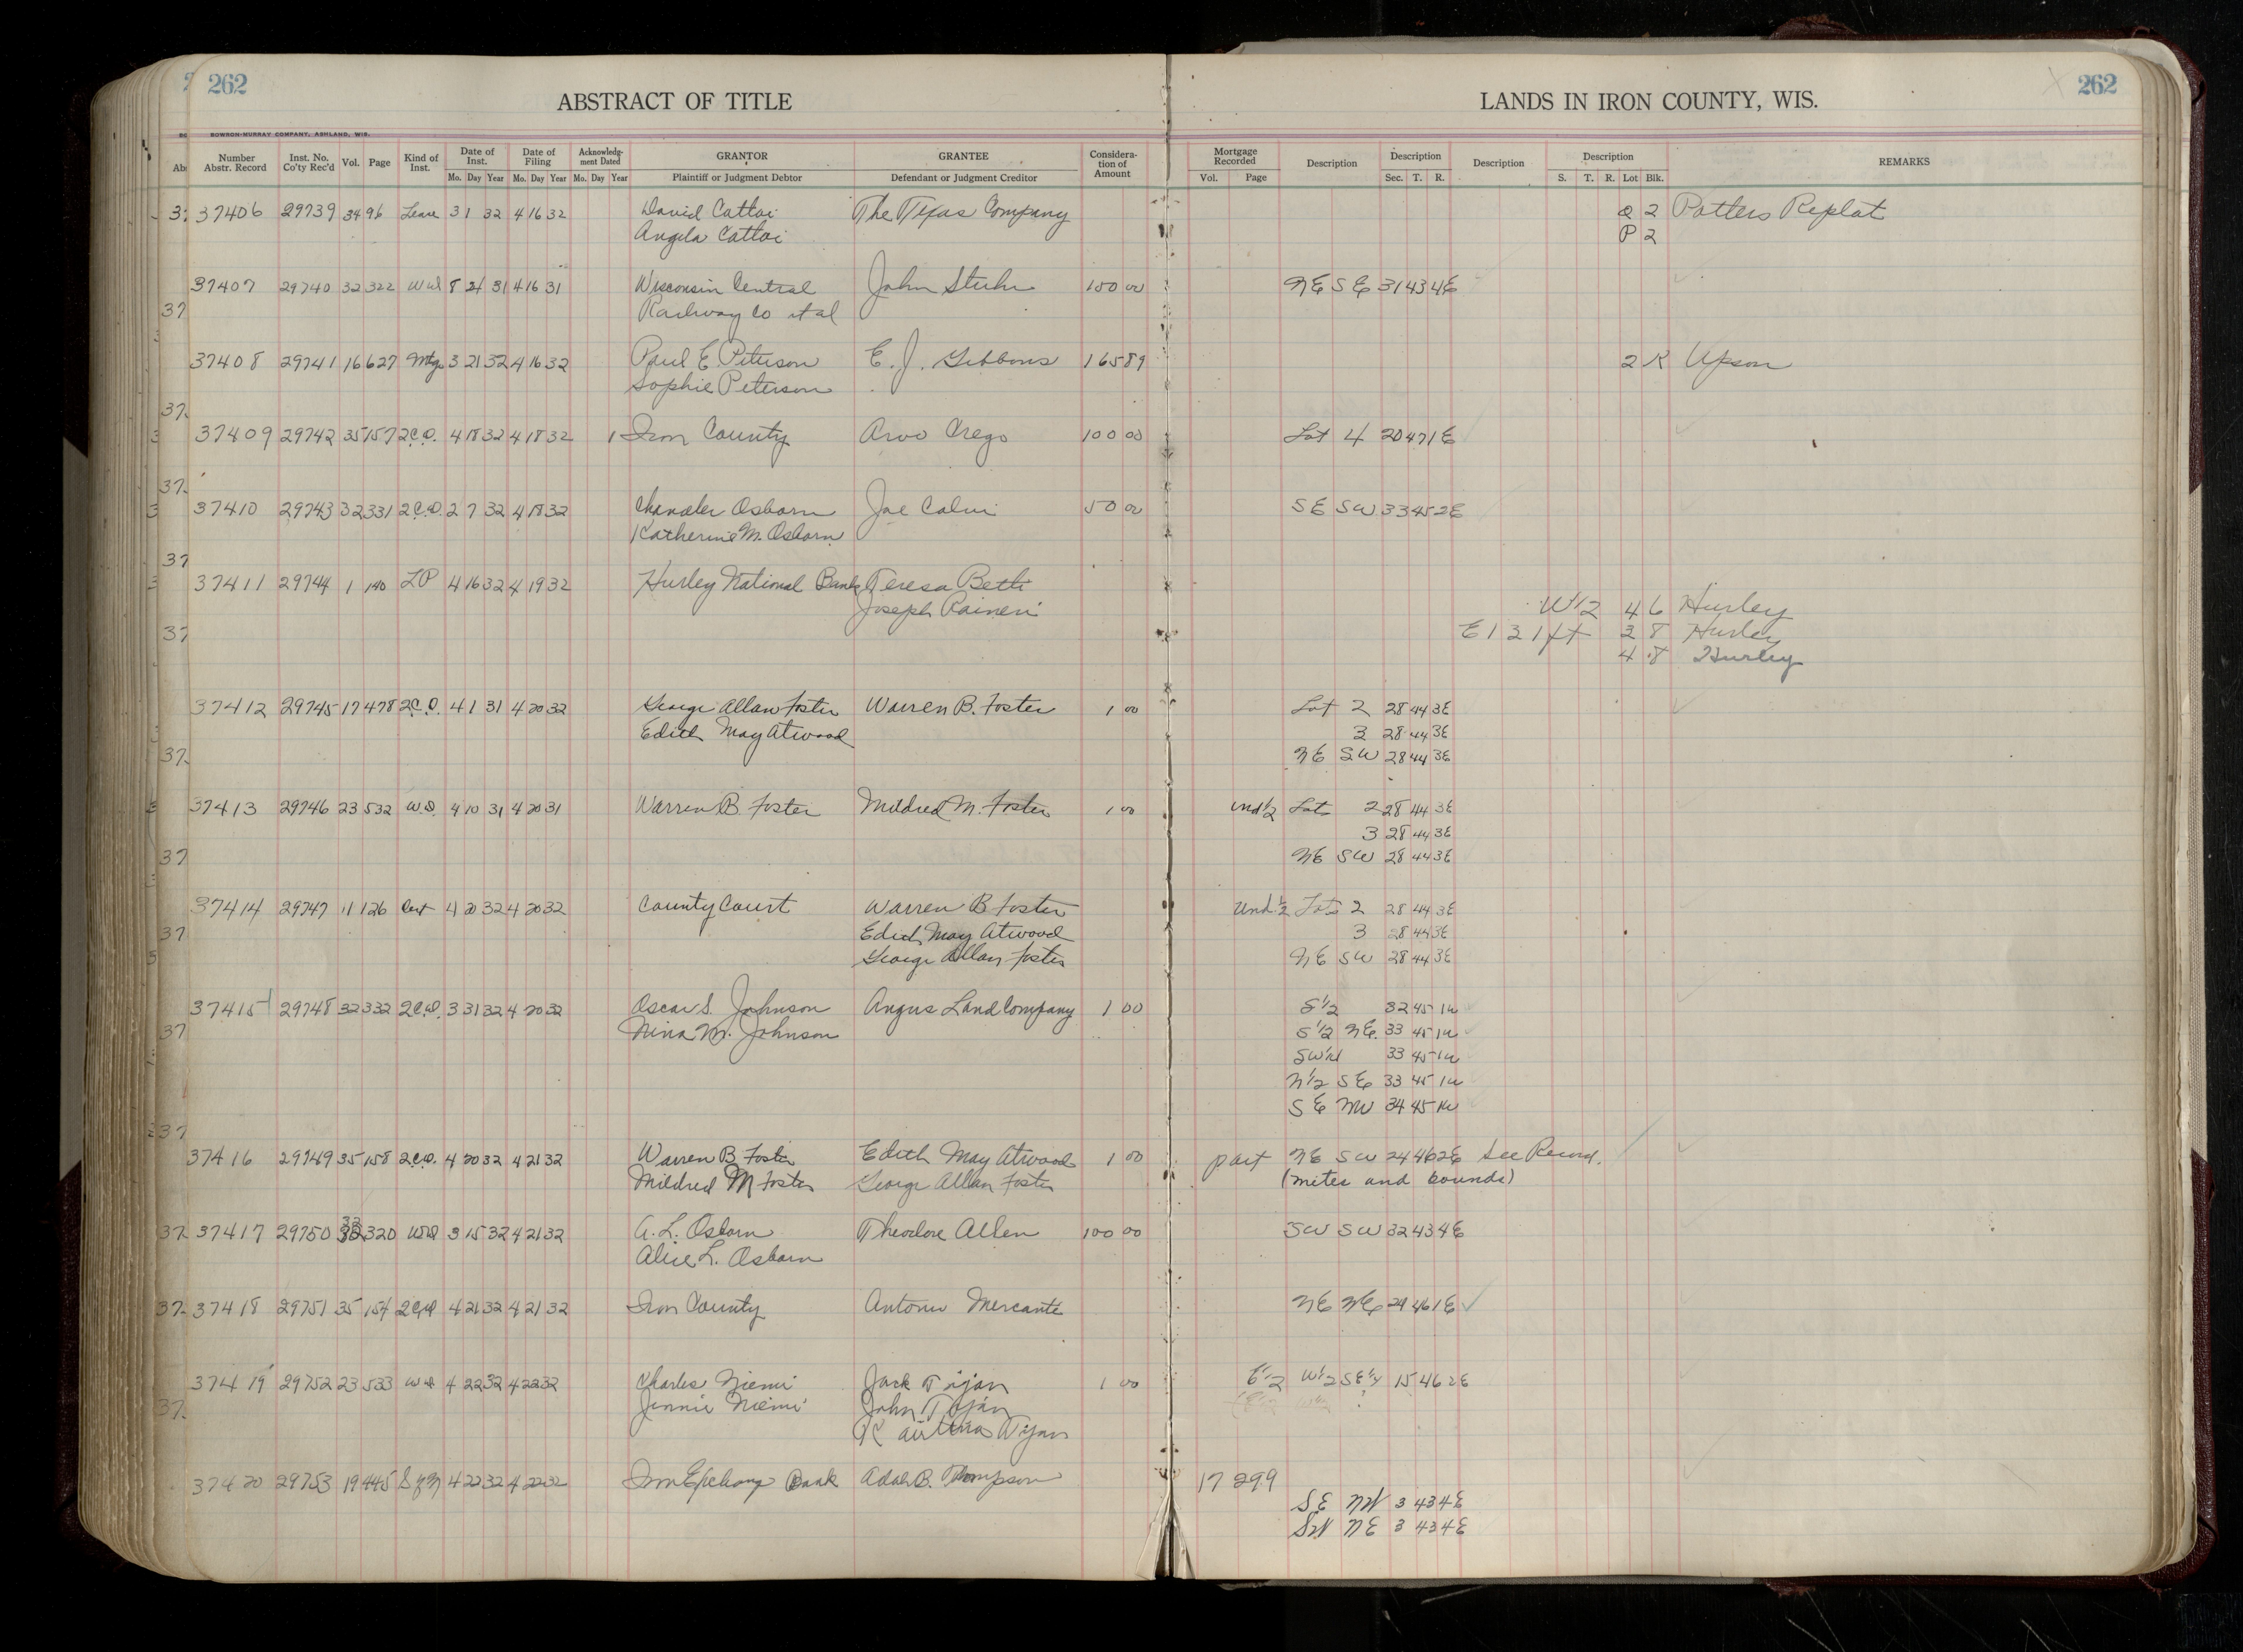 262
ABSTRACT OF TITLE
LANDS IN IRON COUNTY, WIS.
262
BOWRON-MURRAY COMPANY, ASHLAND, WIS.
Number Abstr. Record Inst. No. Co'ty Rec'd Vol. Page Kind of Inst. Date of Inst. Date of Filing Acknowledg-ment Dated GRANTOR GRANTEE Considera-tion of Amount Mortgage Recorded Description Description Description Description REMARKS
Mo. Day Year Mo. Day Year Mo. Day Year Plaintiff or Judgment Debtor Defendant or Judgment Creditor Vol. Page Sec. T. R. S. T. R. Lot Blk.
37406 29739 34 96 Lease 3 1 32 4 16 32 David Cattoi The Texas Company Q 2 Potters Replat
Angela Cattoi P 2
37407 29740 32 322 WD 8 21 31 4 16 31 Wisconsin Central John Stuhr 100 00 NE SE 31 43 4E
Railway Co et al
37408 29741 16 627 Mtge 3 21 32 4 16 32 Paul E Peterson E. J. Gibbons 165 89 2 K Upson
Sophie Peterson
37409 29742 35 157 2C.D. 4 18 32 4 18 32 1 Iron County Arvo Crego 100 00 Lot 4 20 47 1E
37410 29743 32 331 2C.D. 2 7 32 4 18 32 Chandler Osborn Joe Calvi 50 00 SE SW 33 45 2E
Katherine M. Osborn
37411 29744 1 140 LP 4 16 32 4 19 32 Hurley National Bank Teresa Betti
Joseph Raineri W 1/2 4 6 Hurley
E 1 21 ft 3 8 Hurley
4 8 Hurley
37412 29745 17 478 2C.D. 4 1 31 4 20 32 George Allan Foster Warren B. Foster 1 00 Lot 2 28 44 3E
Edith May Atwood 3 28 44 3E
NE SW 28 44 3E
37413 29746 23 532 W.D. 4 10 31 4 20 31 Warren B. Foster Mildred M. Foster 1 00 Und 1/2 Lots 2 28 44 3E
3 28 44 3E
NE SW 28 44 3E
37414 29747 11 126 Cert 4 20 32 4 20 32 County Court Warren B Foster Und. 1/2 Lots 2 28 44 3E
Edith May Atwood 3 28 44 3E
George Allan Foster NE SW 28 44 3E
37415 29748 32 332 2C.D. 3 31 32 4 20 32 Oscar S. Johnson Angus Land Company 1 00 S 1/2 32 45 1W
Nina M. Johnson S 1/2 NE 33 45 1W
SW 1/4 33 45 1W
N 1/2 SE 33 45 1W
SE NW 34 45 1W
37416 29749 35 158 2C.D. 4 20 32 4 21 32 Warren B Foster Edith May Atwood 1 00 part NE SW 24 46 2E See Record.
Mildred M Foster George Allan Foster (mites and bounds)
37417 29750 33 320 WD 3 15 32 4 21 32 A. L. Osborn Theodore Allen 100 00 SW SW 32 43 4E
Alice L. Osborn
37418 29751 35 154 2CD 4 21 32 4 21 32 Iron County Antonio Mercante NE NE 29 46 1E
37419 29752 23 533 WD 4 22 32 4 22 32 Charles Niemi Jack Tijan 1 00 E 1/2 W 1/2 SE 1/4 15 46 2E
Jennie Niemi John Tijan
Tijan
37420 29753 19 445 S of M 4 22 32 4 22 32 Iron Exchange Bank Adah B. Thompson 17 299
SE NW 3 43 4E
SW NE 3 43 4E